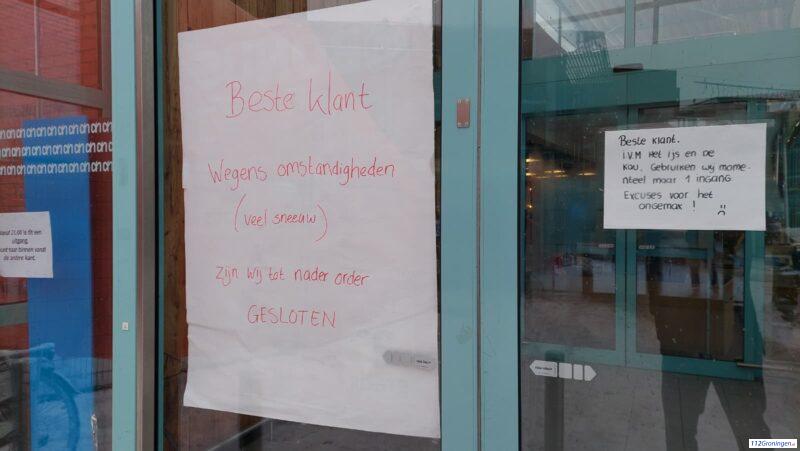 Beste klant
Wegens omstandigheden
(veel sneeuw)
zijn wij tot nader order
GESLOTEN
Beste klant.
I.V.M Het ijs en de
kou, Gebruiken wij mome-
nteel maar 1 ingang
Excuses voor het
ongemak !
Vanaf 21.00 is dit een
uitgang,
kunt naar binnen vanaf
de andere kant.
112Groningen